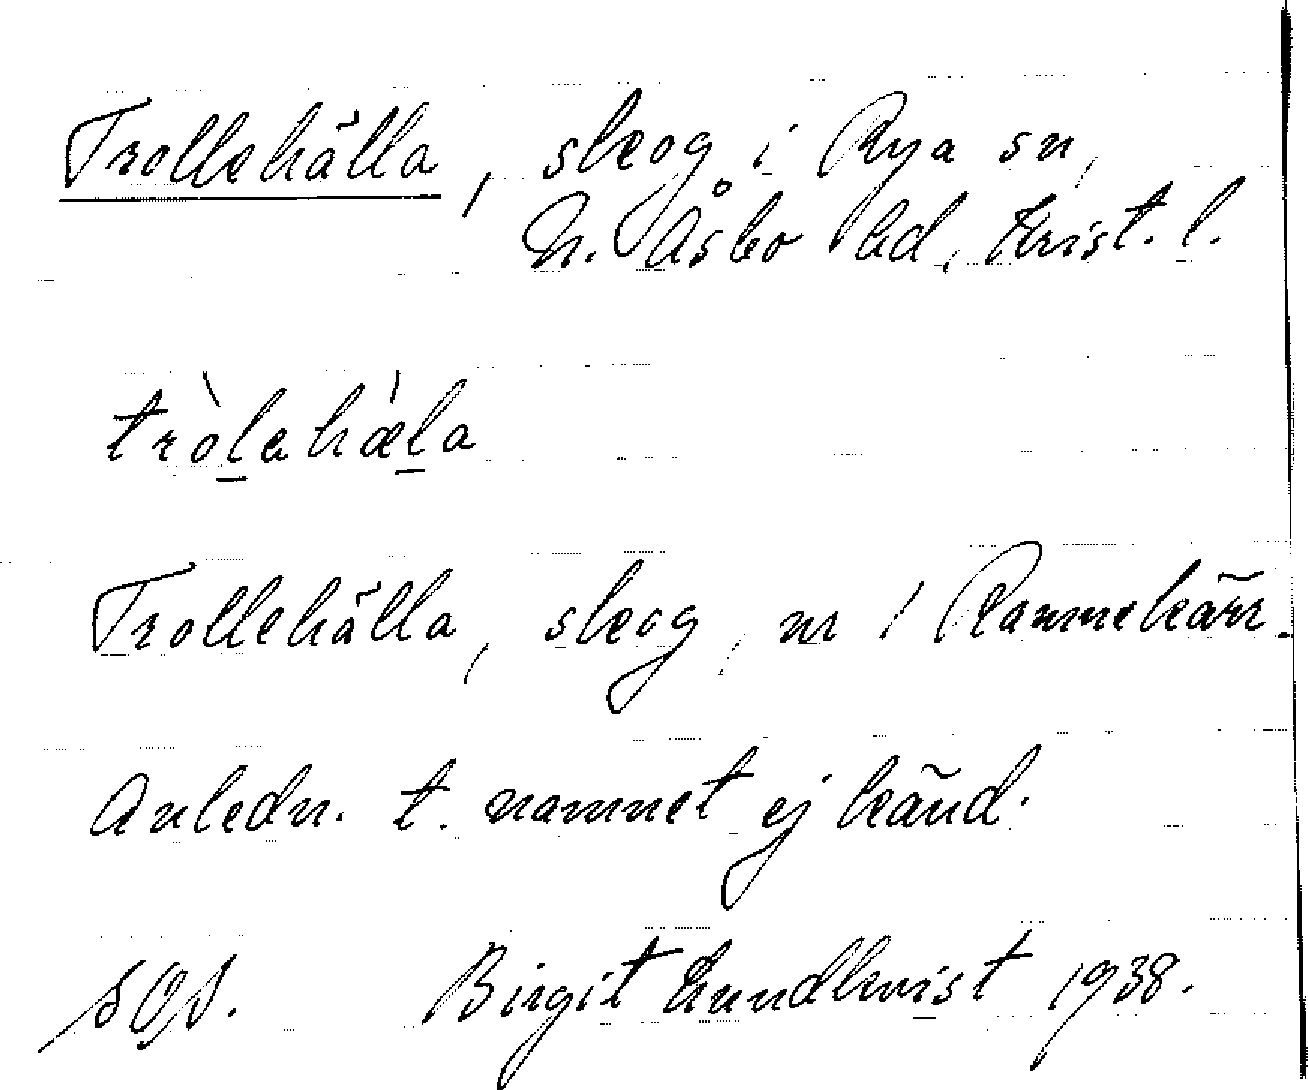 Trollehälla, skog i Rya sn,
N. Åsbo hd, Krist. l.
tròlahæ̀la
Trollehälla, skog, nr 1 Rammekärr.
Anledn. t. namnet ej känd.
SOA. Birgit Lundkvist 1938.